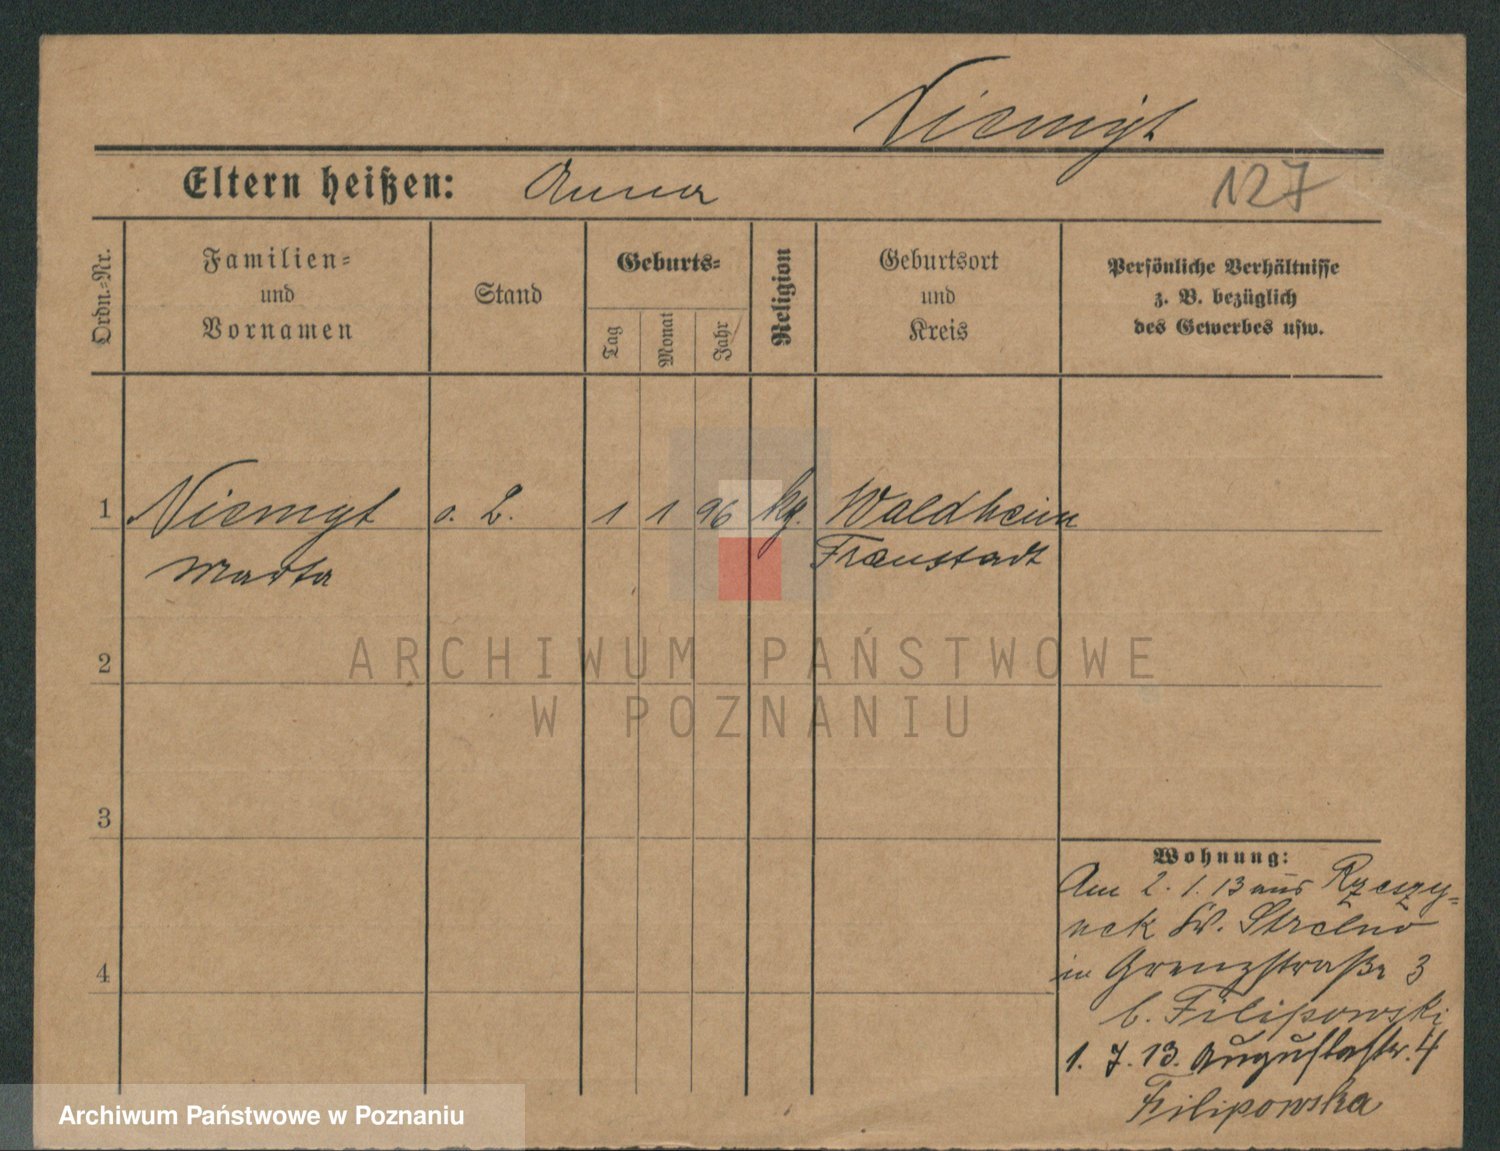 Niemyt
Eltern heißen: Anna
127
Ordn.-Nr.
Familien-
und
Vornamen
Stand
Geburts-
Tag
Monat
Jahr
Religion
Geburtsort
und
Kreis
Persönliche Verhältnisse
z. B. bezüglich
des Gewerbes usw.
1 Niemyt o. 1 1 96 kg. Waldheim
Marta Fraustadt
2
ARCHIWUM PAŃSTWOWE
W POZNANIU
3
4
Wohnung:
Am 2. 1. 13 aus Rzeszy-
nek Kr. Strelno
in Grenzstraße 3
b. Filipowski
1. 7. 13. Augustastr. 4
Filipowska
Archiwum Państwowe w Poznaniu